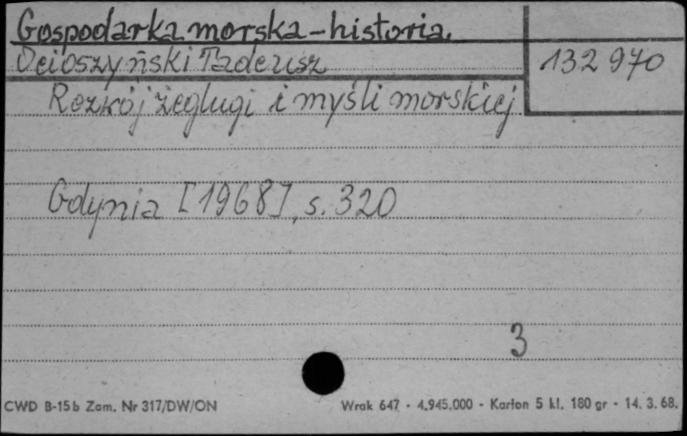 Gospodarka morska - historia.
Ocioszyński Tadeusz
132 970
Rozwój żeglugi i myśli morskiej
Gdynia [1968], s. 320
3
CWD B-15b Zam. Nr 317/DW/ON Wrak 647 - 4.945.000 - Karton 5 kl. 180 gr - 14. 3. 68.